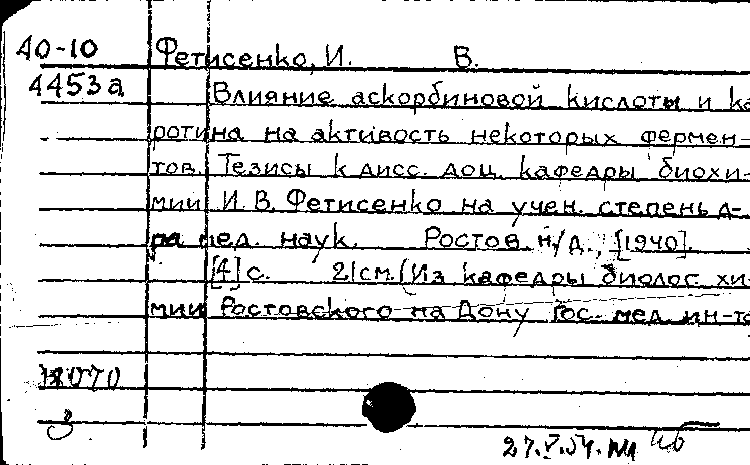 40-10 Фетисенко, И. В.
4453а Влияние аскорбиновой кислоты и ка
ротина на активость некоторых фермен-
тов. Тезисы к дисс. доц. кафедры биохи-
мии И. В. Фетисенко на учен. степень д-
ра мед. наук. Ростов н/Д., [1940].
[4] с. 21 см. (Из кафедры биолог. хи-
мии Ростовского на Дону Гос. мед. ин-та
27.V.54.